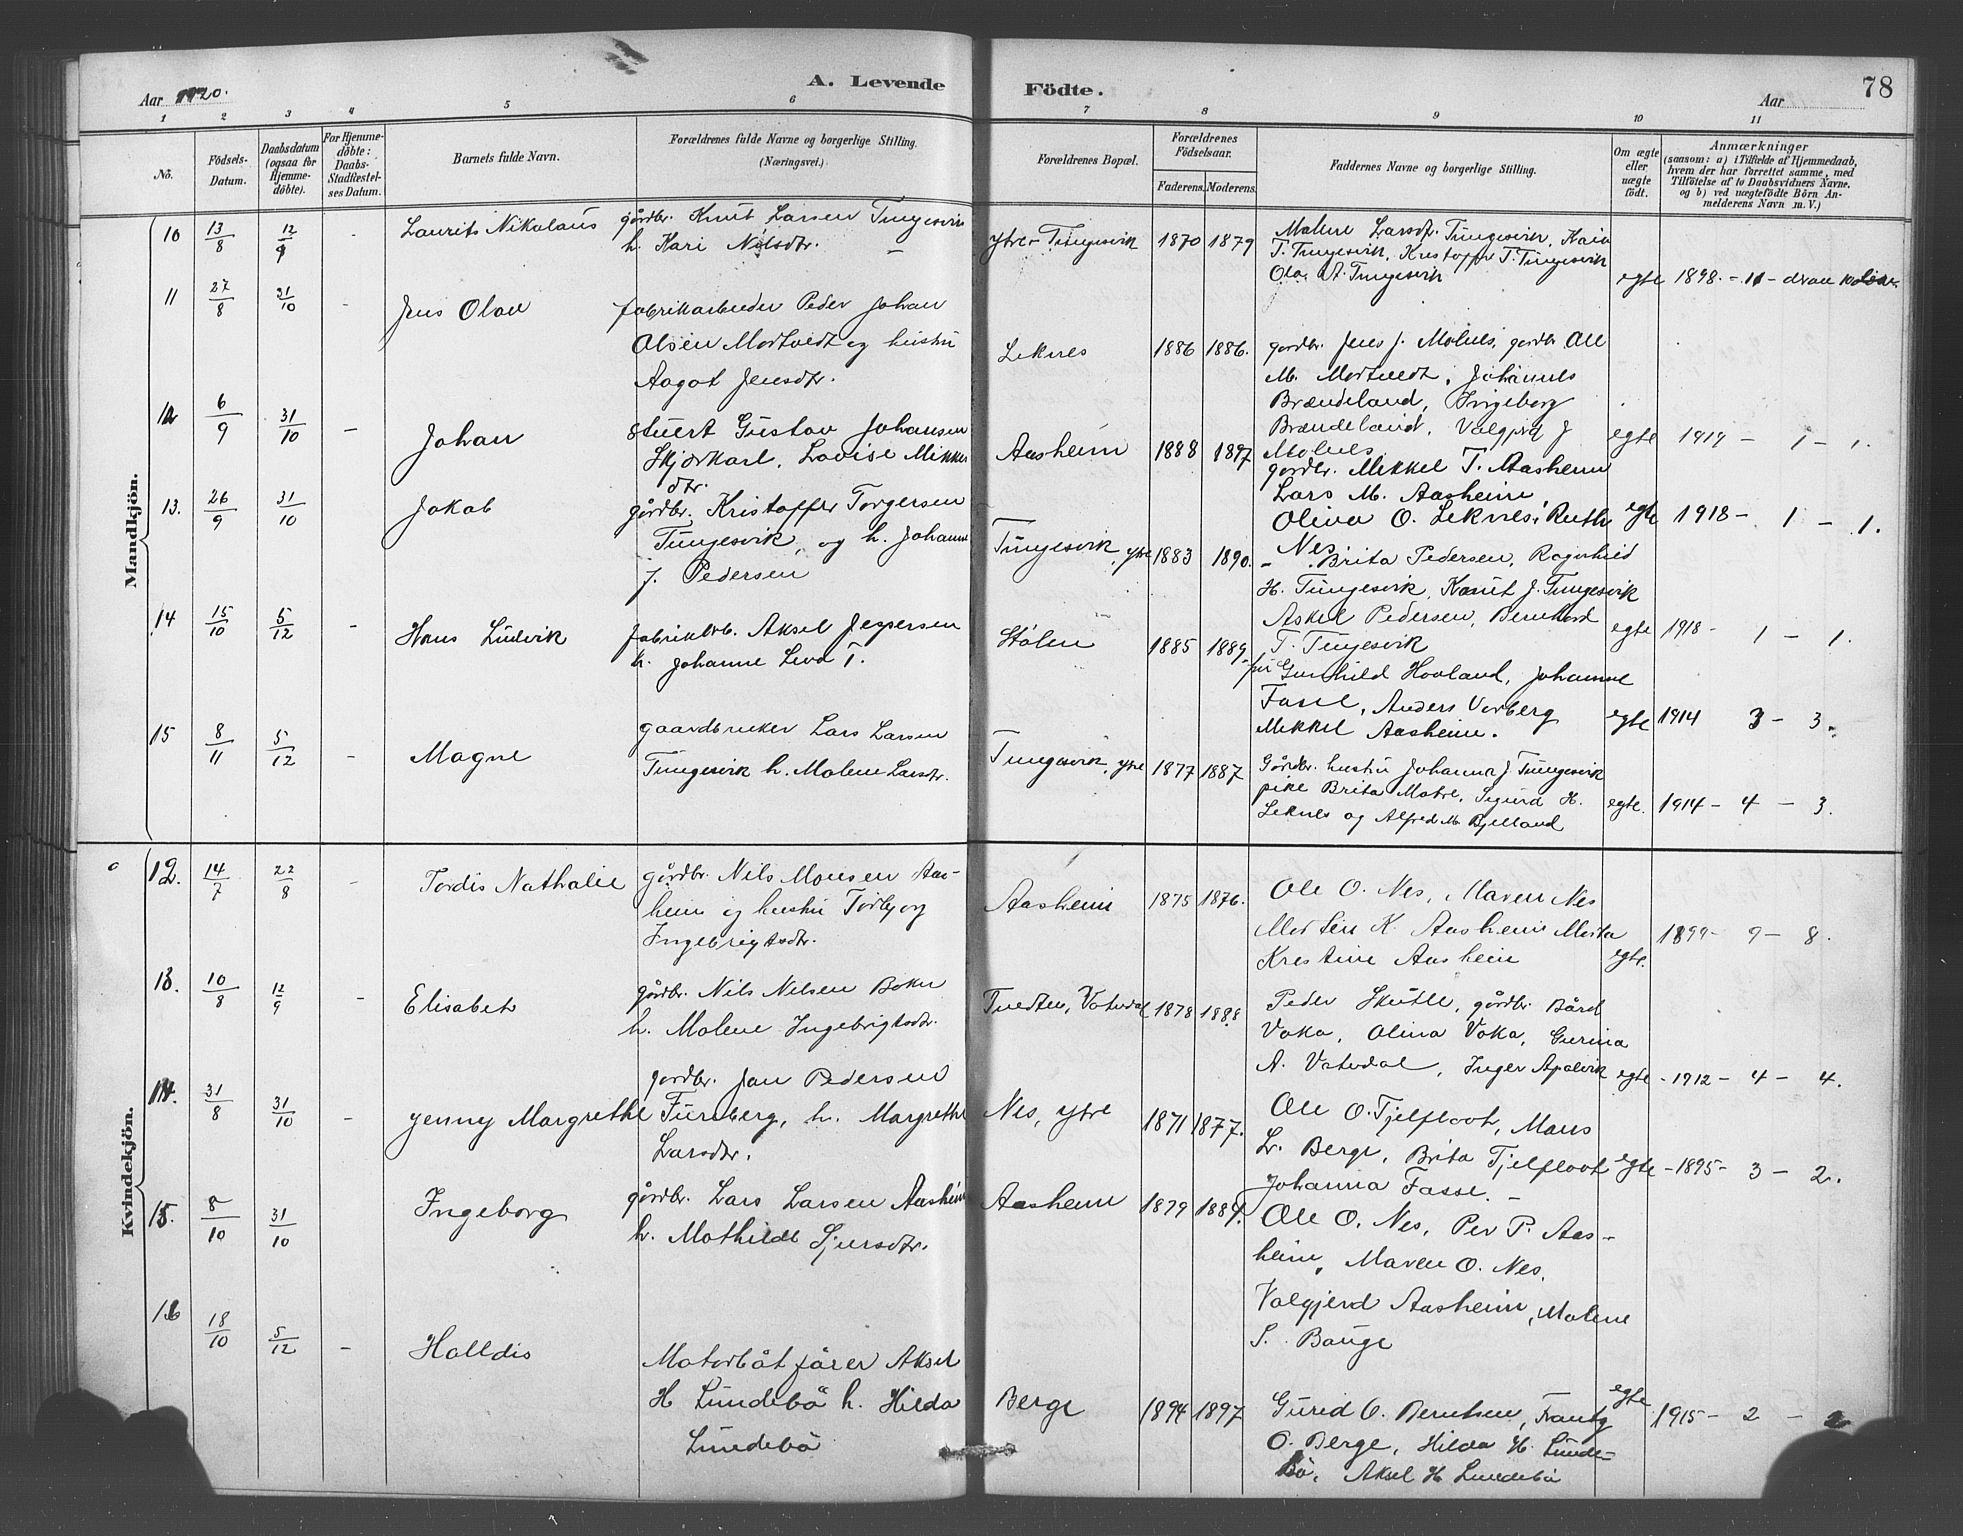 Aar 1920.
A. Levende
Födte.
Aar
78
1 2 3 4 5 6 7 8 9 10 11
No.
Födsels-
Datum.
Daabsdatum
(ogsaa for
Hjemme-
döbte).
For Hjemme-
döbte:
Daabs-
Stadfæstel-
ses Datum.
Barnets fulde Navn.
Forældrenes fulde Navne og borgerlige Stilling.
(Næringsvei.)
Forældrenes Bopæl.
Forældrenes
Födselsaar.
Faderens. Moderens.
Faddernes Navne og borgerlige Stilling.
Om ægte
eller
uægte
födt.
Anmærkninger
(saasom: a) i Tilfælde af Hjemmedaab,
hvem der har forrettet samme, med
Tilföielse af to Daabsvidners Navne,
og b) ved uægtefödte Börn An-
melderens Navn m. V.)
Mandkjön.
10 13/8 12/9 - Laurits Nikolaus
gårdbr. Knut Larsen Tungesvik
h. Kari Nilsdtr. -
ytre Tungesvik 1870 1879
Malene Larsdtr. Tungesvik, Kaia
T. Tungesvik, Kristoffer T. Tungesvik
Ola A. Tungesvik
egte 1898 - 11 -
11 27/8 31/10 - Jens Olav
fabrikarbeider Peder Johan
Olsen Mortveit og hustru
Aagot Jensdtr.
Leknes 1886 1886.
gardbr. Jens J. Molnes, gardbr. Ole
M. Mortvedt, Johannes
Brændeland, Ingeborg
Brændeland, Valgjerd J
Molnes
egte 1919 - 1 - 1.
12 6/9 31/10 - Johan
Stuert Gustav Johansen
Skjorkarl, Lovise Mikkels
dtr.
Aasheim 1888 1897
gardbr. Mikkel T. Aasheim
Lars M. Aasheim,
Oliva O. Leknes, Ruth
Nes
egte 1918 - 1 - 1.
13. 26/9 31/10 Jakob
gårdbr. Kristoffer Torgersen
Tungesvik, og h. Johanne
J. Pedersen
Tungesvik, ytre 1883 1890.
Brita Pedersen, Ragnhild
H. Tungesvik, Knut J. Tungesvik
Askel Pedersen, Bernhard
T. Tungesvik
egte 1918 - 1 - 1.
14 15/10 5/12 - Hans Ludvik
fabrikarb. Aksel Jespersen
h. Johanne Lena T.
Stølen 1885 1889
Gunhild Hovland, Johanne
Fasse, Anders Varberg
Mikkel Aasheim.
egte 1914 3 - 3.
15 8/11 5/12 - Magne
gaardbruker Lars Larsen
Tungesvik h. Malene Larsdtr.
Tungesvik, ytre 1877 1887
Gårdbr. hustru Johanna J. Tungesvik
pike Brita Matre, Sigurd H.
Leknes og Alfred M. Bjelland
egte. 1914 - 4 - 3.
Kvindekjön.
12. 14/7 22/8 - Tordis Nathalie
gårdbr. Nils Monsen Aas-
heim og hustru Torbjørg
Ingebrigtsdtr.
Aasheim 1875 1876.
Ole O. Nes, Maren Nes
Morten K. Aasheim Marta
Kristine Aasheim
egte. 1899 - 9 - 8.
13. 10/8 12/9 - Elisabet
gårdbr. Nils Nilsen Bokn
h. Malene Ingebrigtsdtr.
Tvedten, Vatsdal 1878 1888
Peder Skutle, gårdbr. Bård
Voka, Olina Voka, Gurina
A. Vatsdal, Inger Apalvik
egte - 1912 - 4 - 4.
14. 31/8 31/10 - Jenny Margrethe
gårdbr. Jan Pedersen
Furuberg, h. Margrethe
Larsdtr.
Nes, ytre 1871 1877.
Ole O. Tjelflaat, Mons
L. Berge, Brita Tjelflaat
Johanna Fasse. -
egte - 1895 - 3 - 2.
15. 8/10 31/10 Ingeborg
gårdbr. Lars Larsen Aasheim
h. Mathilde Sjursdtr.
Aasheim 1879 1884.
Ole O. Nes, Per P. Aas-
heim, Maren O. Nes.
Valgjerd Aasheim, Malene
S. Bauge
16 18/10 5/12 - Halldis
Motorbåtfører Aksel
H Lundebø h. Hilda
Lundebø
Berge 1894 1897
Gurid O. Berntsen, Frants
O. Berge, Hilda H. Lunde-
bø, Aksel H Lundebø
egte 1915 - 2 - 2